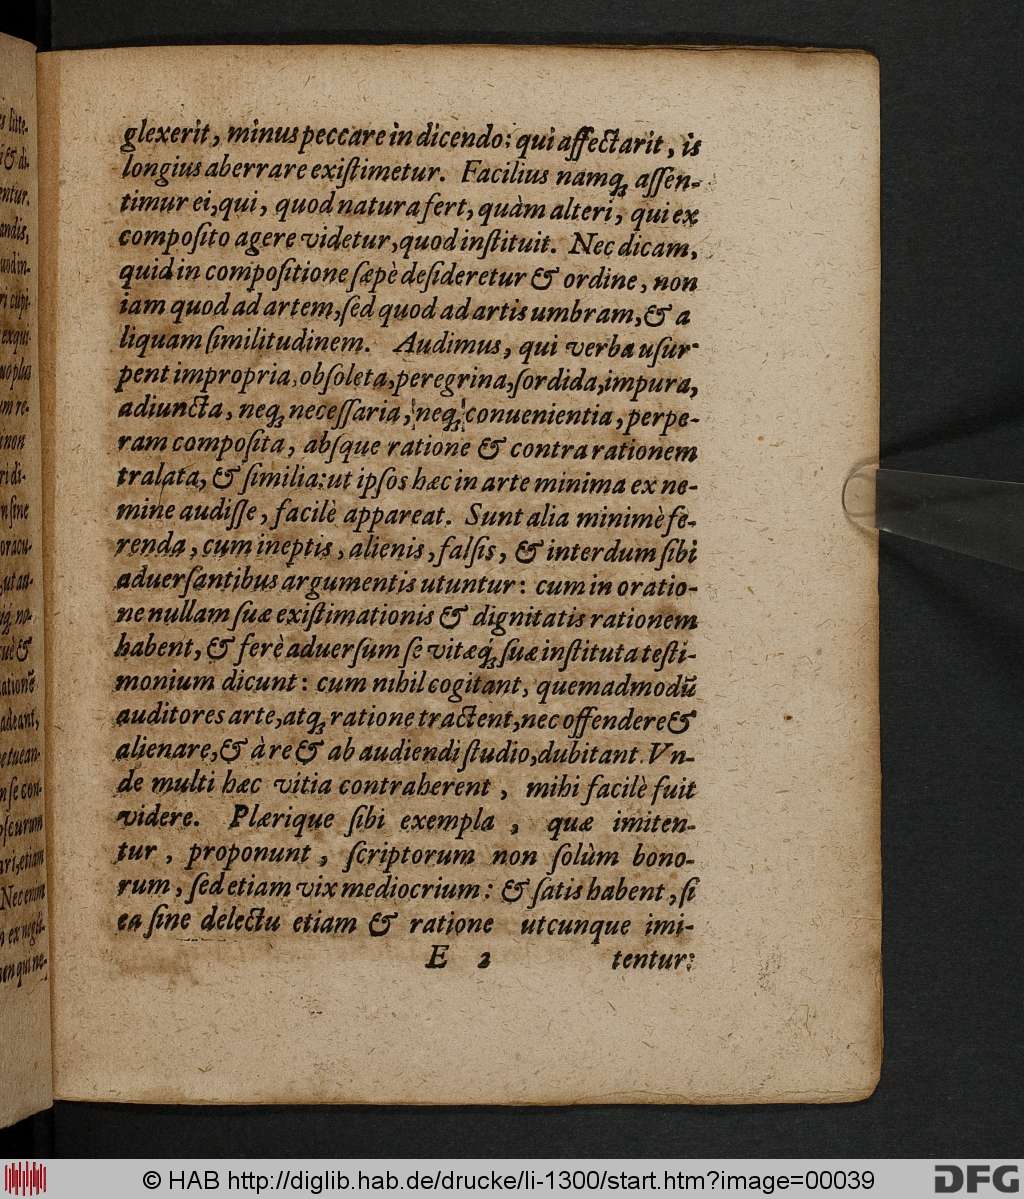 glexerit, minus peccare in dicendo: qui affectarit, is
longius aberrare exiſtimetur. Facilius namq́; aſſen-
timur ei, qui, quod natura fert, quàm alteri, qui ex
compoſito agere videtur, quod inſtituit. Nec dicam,
quid in compoſitione ſæpè deſideretur & ordine, non
iam quod ad artem, ſed quod ad artis umbram, & a
liquam ſimilitudinem. Audimus, qui verba uſur-
pent impropria, obſoleta, peregrina, ſordida, impura,
adiuncta, neq; neceſſaria, neq; conuenientia, perpe-
ram compoſita, abſque ratione & contra rationem
tralata, & ſimilia: ut ipſos hæc in arte minima ex ne-
mine audiſſe, facilè appareat. Sunt alia minimè fe-
renda, cum ineptis, alienis, falſis, & interdum ſibi
aduerſantibus argumentis utuntur: cum in oratio-
ne nullam ſuæ exiſtimationis & dignitatis rationem
habent, & ferè aduerſum ſe vitæq́; ſuæ inſtituta teſti-
monium dicunt: cum nihil cogitant, quemadmodū
auditores arte, atq; ratione tractent, nec offendere &
alienare, & à re & ab audiendi ſtudio, dubitant. Vn-
de multi hæc vitia contraherent, mihi facilè fuit
videre. Plærique ſibi exempla, quæ imiten-
tur, proponunt, ſcriptorum non ſolùm bono-
rum, ſed etiam vix mediocrium: & ſatis habent, ſi
ea ſine delectu etiam & ratione utcunque imi-
E 2 tentur:
© HAB http://diglib.hab.de/drucke/li-1300/start.htm?image=00039
DFG